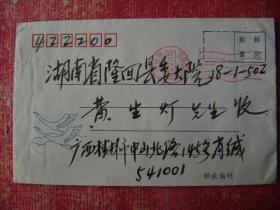 422200
贴邮
票处
湖南省隆回县委大院18-1-502
黄生灯先生收
广西桂林市中山北路145号肖城
541001
邮政编码